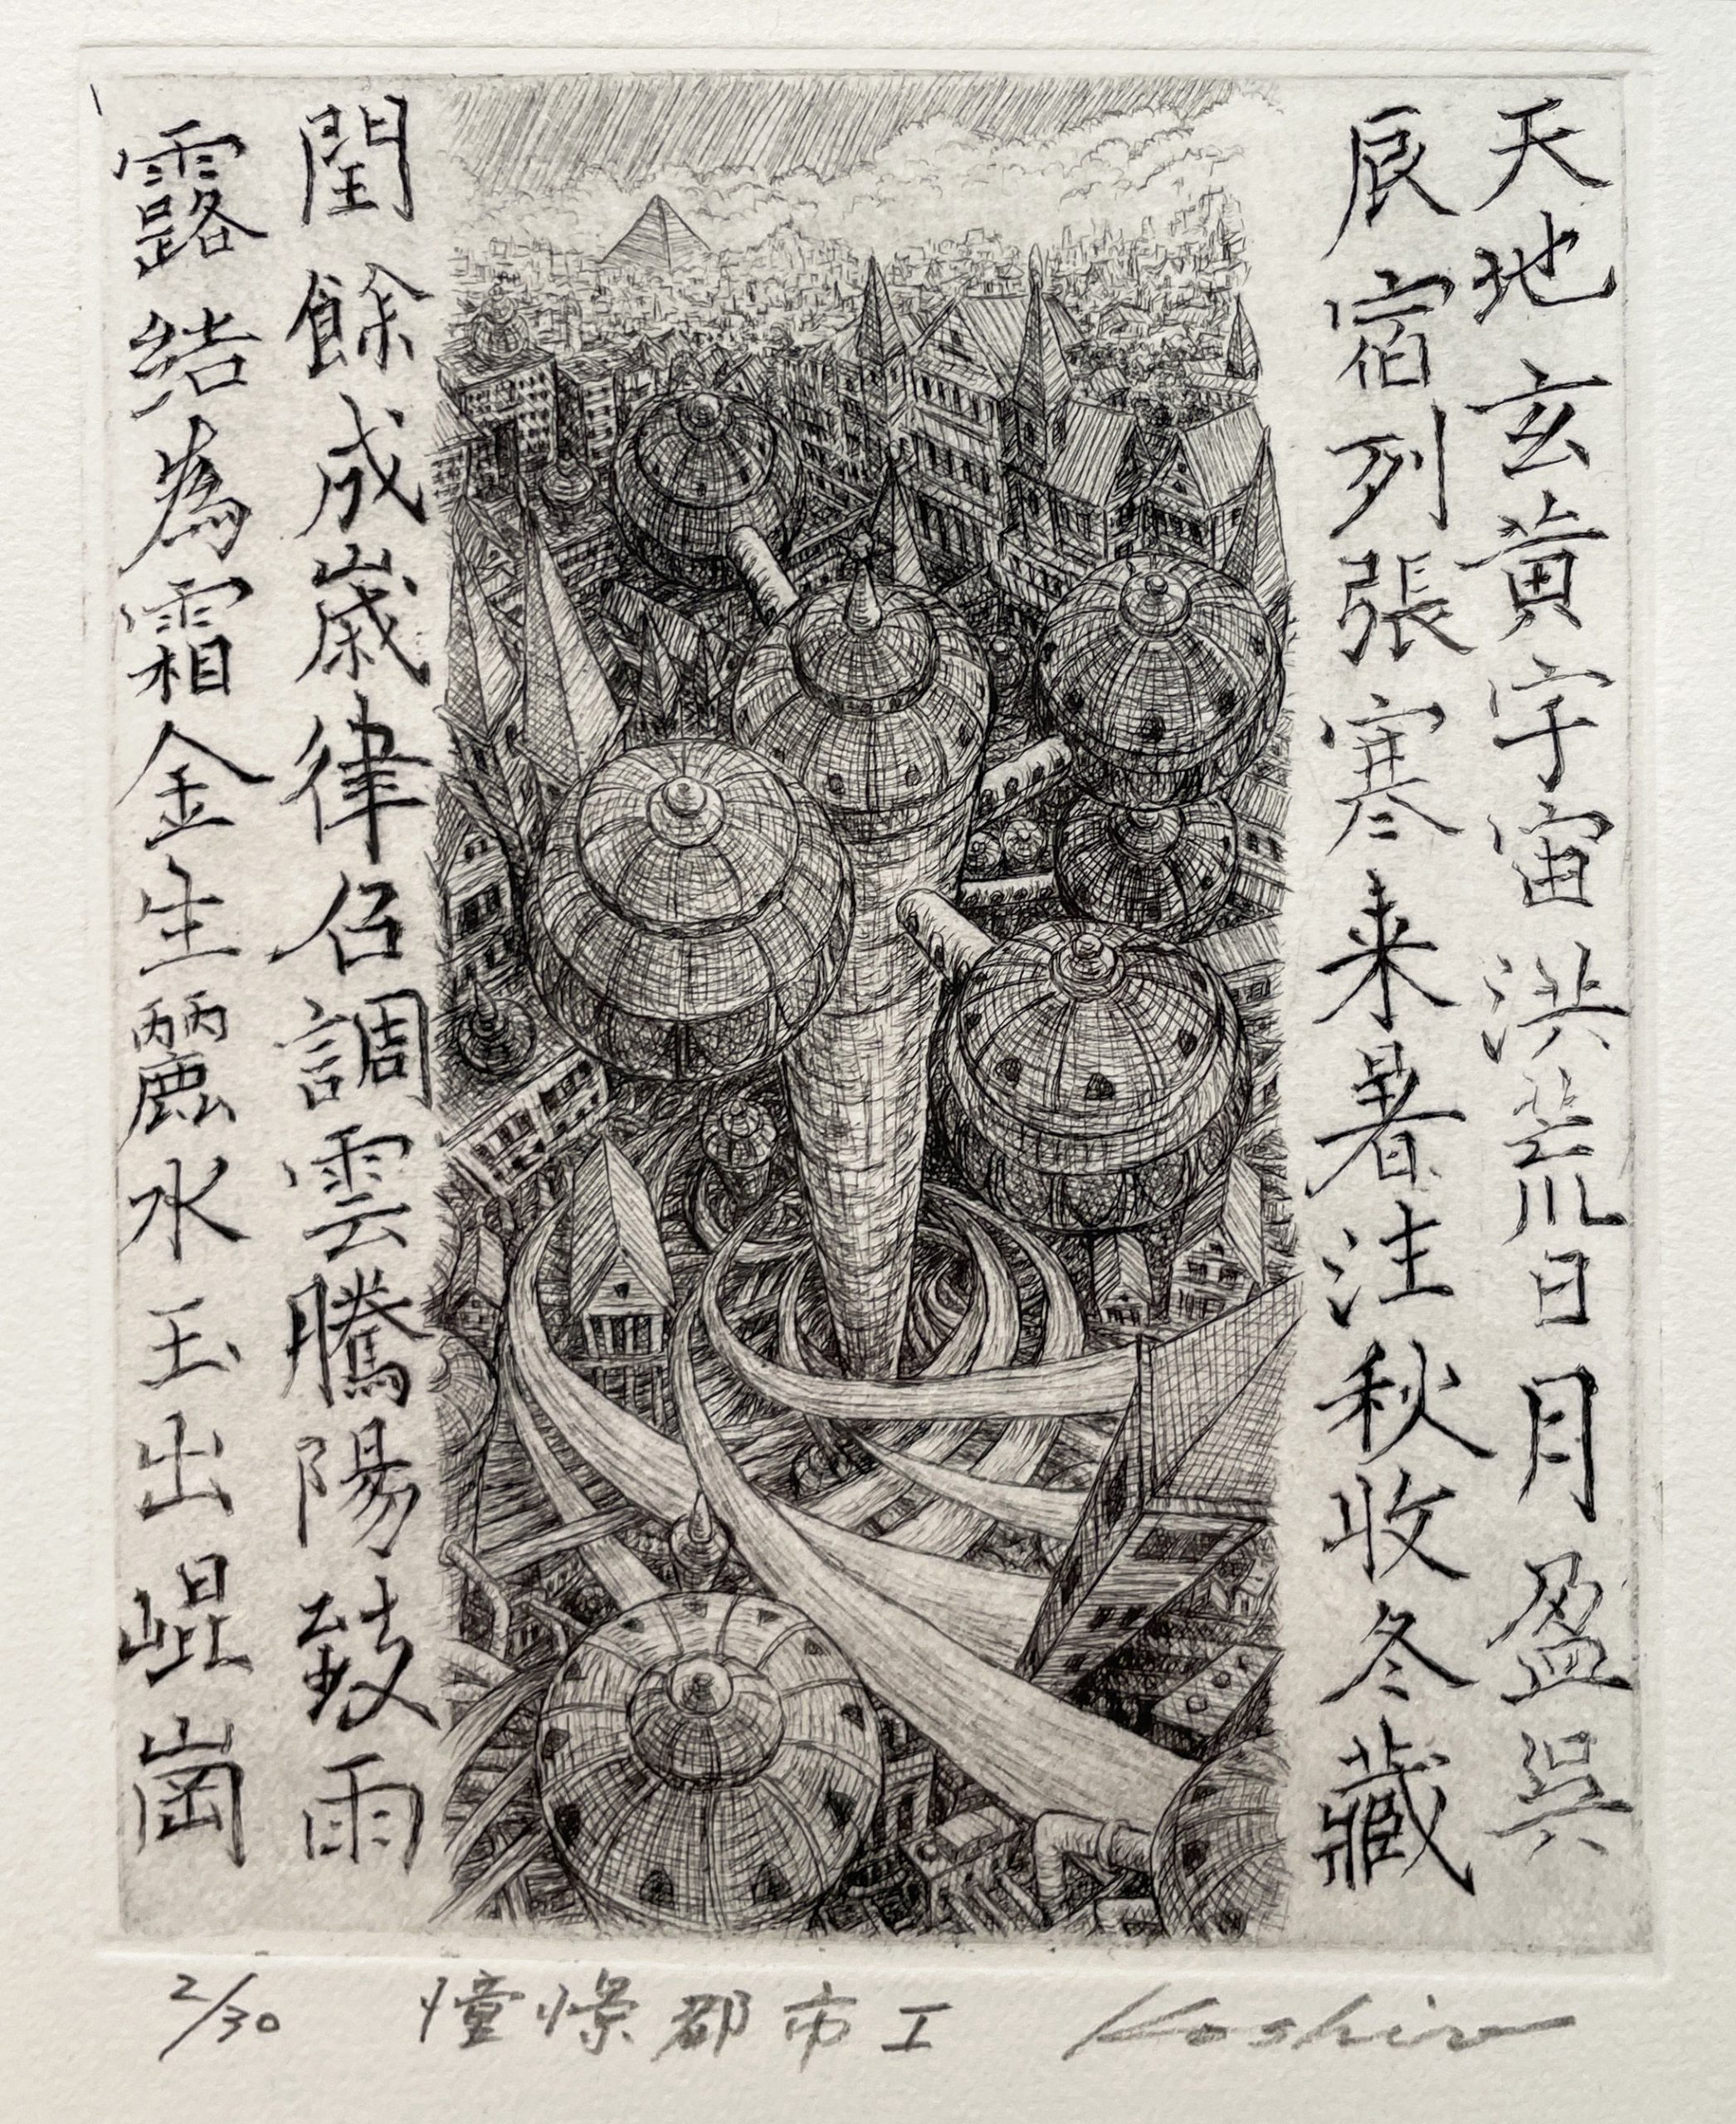 天地玄黄宇宙洪荒日月盈呉
辰宿列張寒来暑注秋收冬藏
閏餘成嵗律召調雲騰陽致雨
露結為霜金生麗水玉出崐崗
2/30 憧憬都市I Koshiro